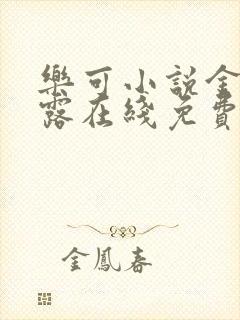 樂可小說金
露在綫免費
金鳳春